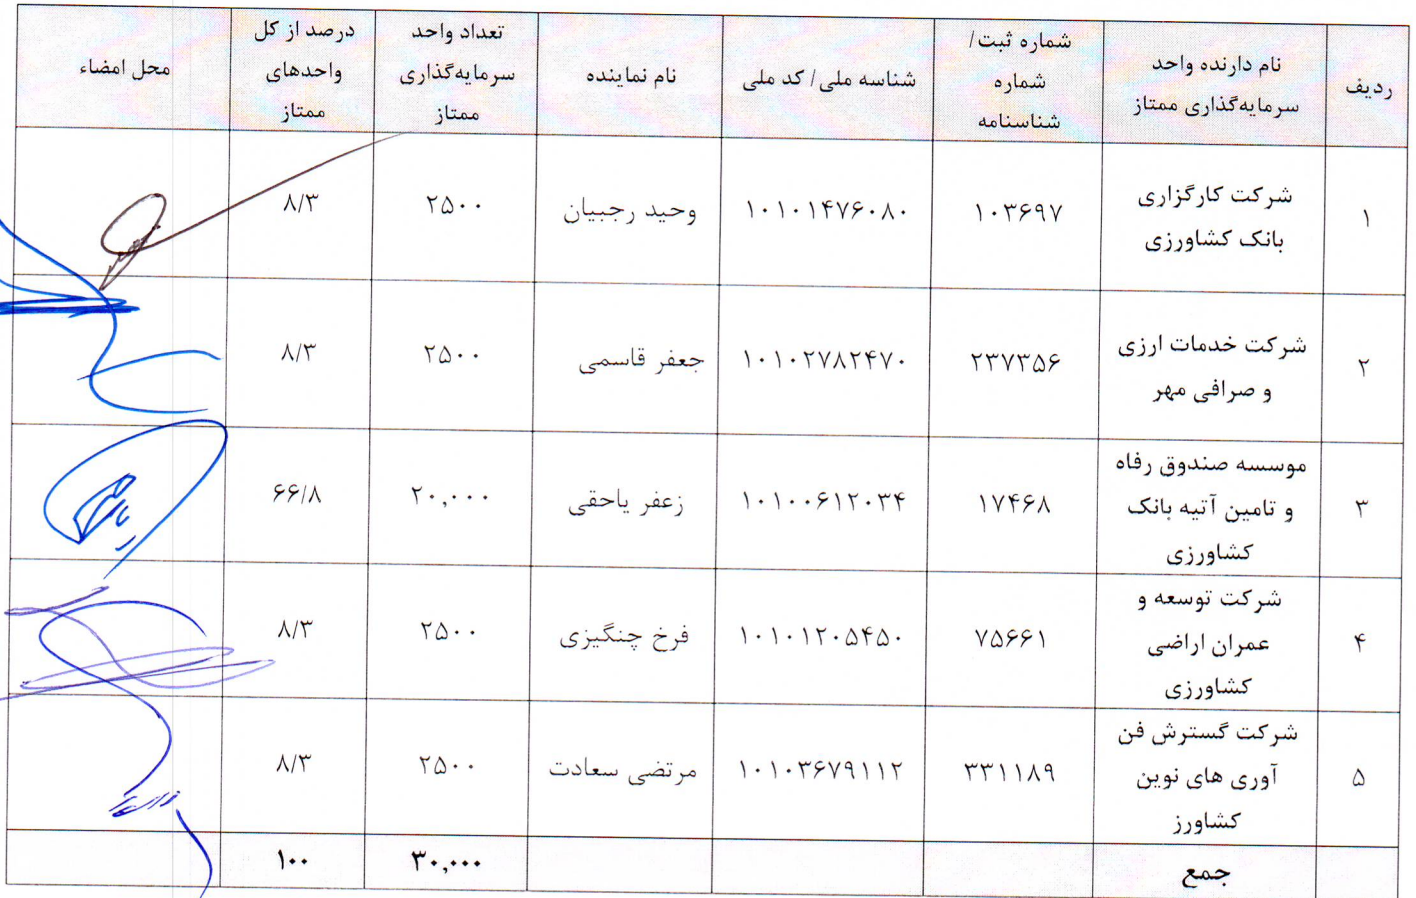 ردیف
نام دارنده واحد
سرمایه‌گذاری ممتاز
شماره ثبت/
شماره
شناسنامه
شناسه ملی / کد ملی
نام نماینده
تعداد واحد
سرمایه‌گذاری
ممتاز
درصد از کل
واحدهای
ممتاز
محل امضاء
۱
شرکت کارگزاری
بانک کشاورزی
۱۰۳۶۹۷
۱۰۱۰۱۴۷۶۰۸۰
وحید رجبیان
۲۵۰۰
۸/۳
۲
شرکت خدمات ارزی
و صرافی مهر
۲۳۷۳۵۶
۱۰۱۰۲۷۸۲۴۷۰
جعفر قاسمی
۲۵۰۰
۸/۳
۳
موسسه صندوق رفاه
و تامین آتیه بانک
کشاورزی
۱۷۴۶۸
۱۰۱۰۰۶۱۲۰۳۴
زعفر یاحقی
۲۰,۰۰۰
۶۶/۸
۴
شرکت توسعه و
عمران اراضی
کشاورزی
۷۵۶۶۱
۱۰۱۰۱۲۰۵۴۵۰
فرخ چنگیزی
۲۵۰۰
۸/۳
۵
شرکت گسترش فن
آوری های نوین
کشاورز
۳۳۱۱۸۹
۱۰۱۰۳۶۷۹۱۱۲
مرتضی سعادت
۲۵۰۰
۸/۳
جمع
۳۰,۰۰۰
۱۰۰